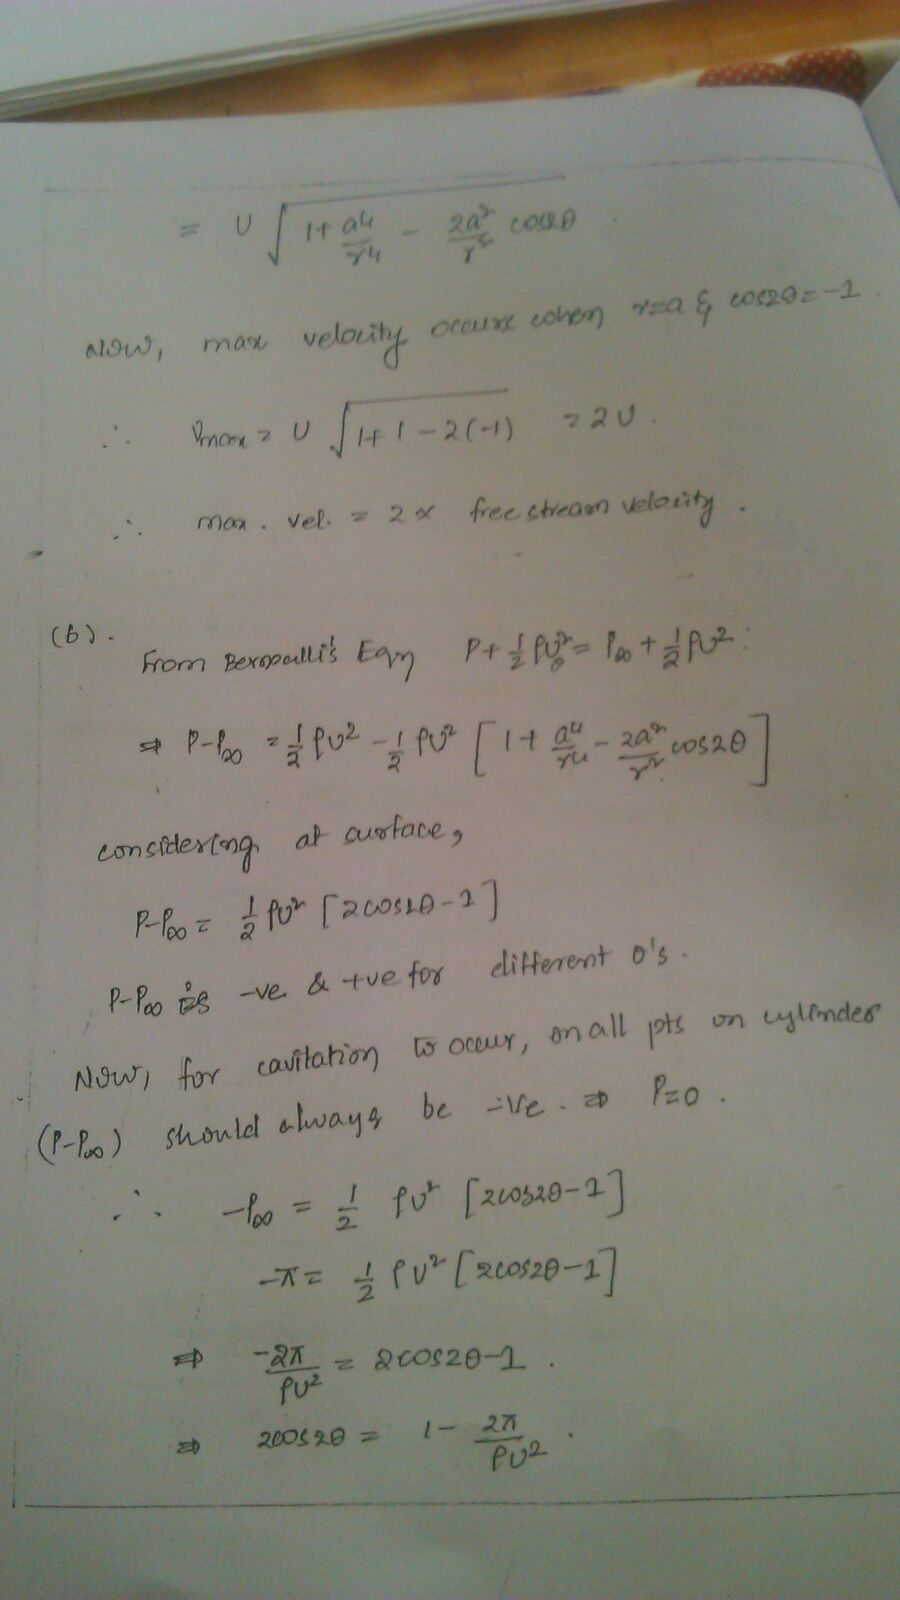 = U √(1 + a⁴/r⁴ - 2a²/r² cos2θ)
Now, max velocity occurs when r=a & cos2θ = -1.
∴ Vmax = U √(1+1-2(-1)) = 2U.
∴ max. vel. = 2 × free stream velocity.
(b).
From Bernoulli's Eqn P + ½ρU₀² = P∞ + ½ρU².
⇒ P-P∞ = ½ρU² - ½ρU² [1 + a⁴/r⁴ - 2a²/r² cos2θ]
considering at surface,
P-P∞ = ½ρU² [2cos2θ-1]
P-P∞ is -ve & +ve for different θ's.
Now, for cavitation to occur, on all pts on cylinder
(P-P∞) should always be -ve. ⇒ P=0.
∴ -P∞ = ½ ρU² [2cos2θ-1]
-π = ½ ρU² [2cos2θ-1]
⇒ -2π/ρU² = 2cos2θ-1.
⇒ 2cos2θ = 1 - 2π/ρU².